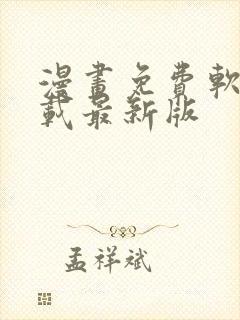 漫畫免費軟
載最新版
孟祥斌